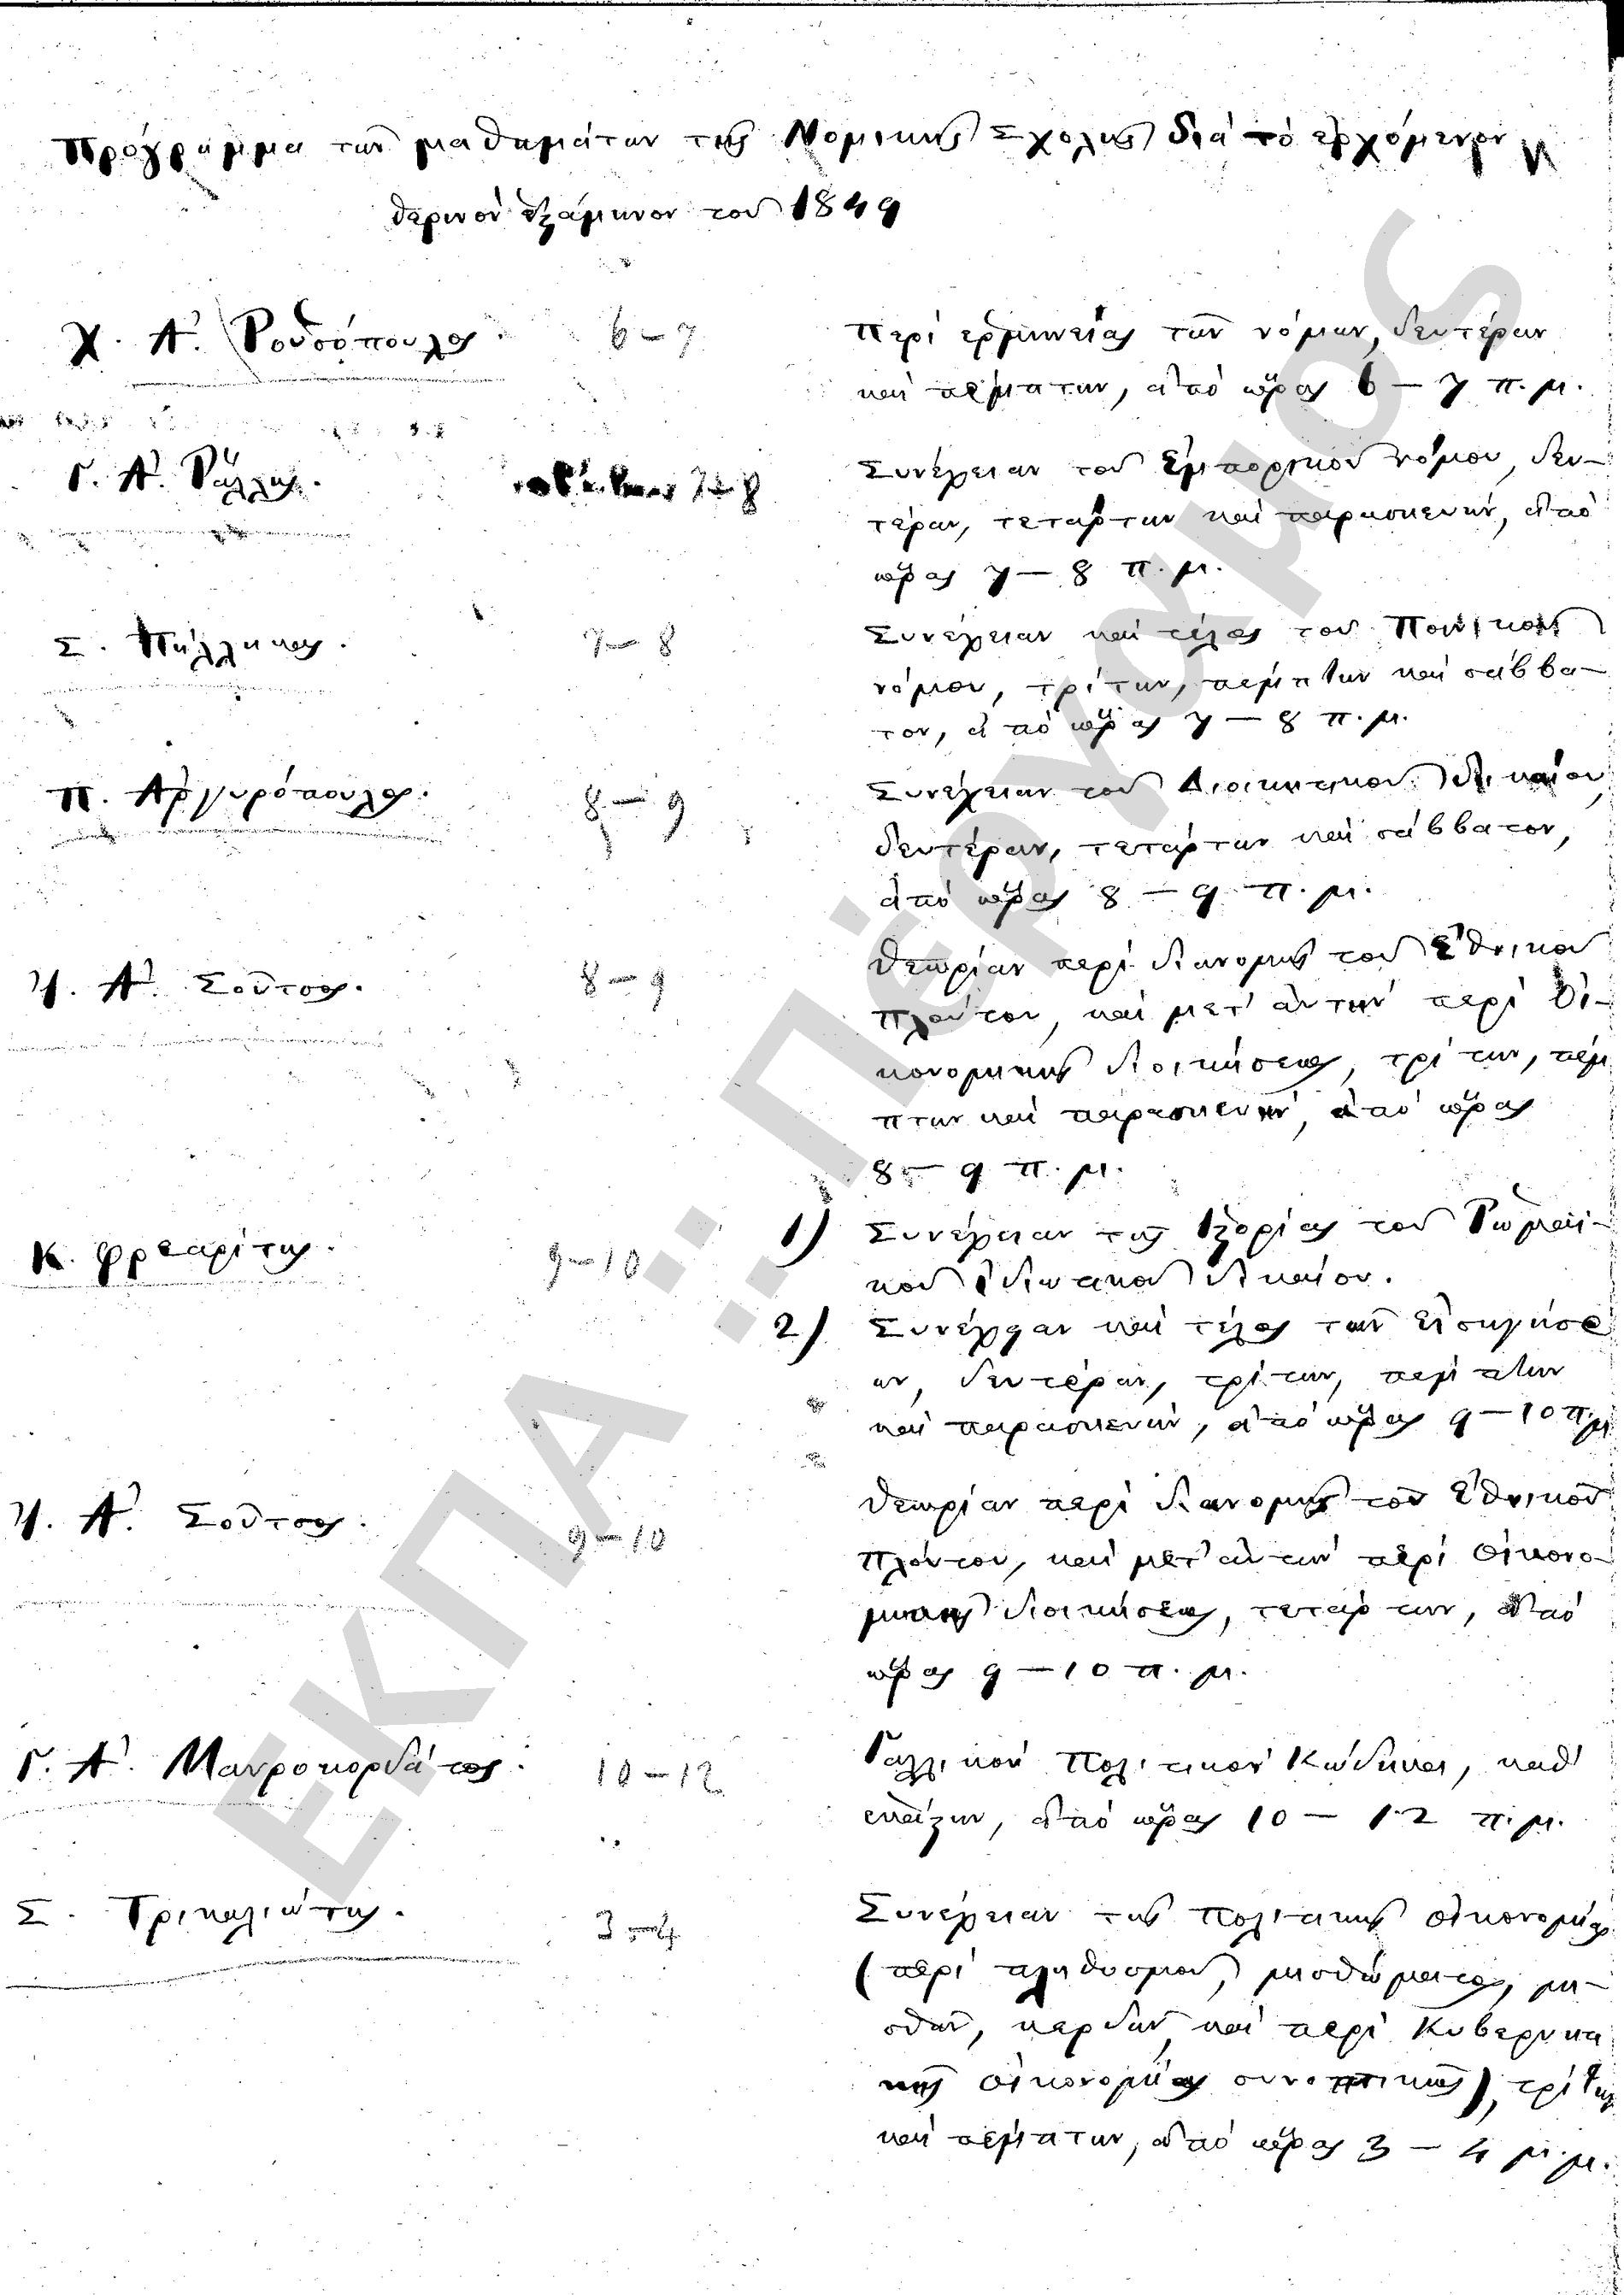 Πρόγραμμα τῶν μαθημάτων τῆς Νομικῆς Σχολῆς διὰ τὸ ἐρχόμενον
θερινὸν ἑξάμηνον τοῦ 1849
Χ. Ἀ. Ῥοδσόπουλος. 6 – 7 Περὶ ἑρμηνείας τῶν νόμων, δευτέραν
καὶ πέμπτην, ἀπὸ ὥρας 6 – 7 π. μ.
Γ. Ἀ. Ῥάλλης. 7 – 8 Συνέχειαν τοῦ Ἐμπορικοῦ νόμου, δευ–
τέραν, τετάρτην καὶ παρασκευήν, ἀπὸ
ὥρας 7 – 8 π. μ.
Σ. Πήλληκας. 7 – 8 Συνέχειαν καὶ τέλος τοῦ Ποινικοῦ
νόμου, τρίτην, πέμπτην καὶ σάββα–
τον, ἀπὸ ὥρας 7 – 8 π. μ.
Π. Ἀργυρόπουλος. 8 – 9 Συνέχειαν τοῦ Διοικητικοῦ δικαίου,
δευτέραν, τετάρτην καὶ σάββατον,
ἀπὸ ὥρας 8 – 9 π. μ.
Ἰ. Ἀ. Σοῦτσος. 8 – 9 Θεωρίαν περὶ διανομῆς τοῦ Ἐθνικοῦ
πλούτου, καὶ μετ' αὐτὴν περὶ Οἰ–
κονομικῆς διοικήσεως, τρίτην, πέμ
πτην καὶ παρασκευήν, ἀπὸ ὥρας
8 – 9 π. μ.
Κ. Φρεαρίτης. 9 – 10 1) Συνέχειαν τῆς ἱστορίας τοῦ Ῥωμαϊ–
κοῦ ἰδιωτικοῦ δικαίου.
2) Συνέχειαν καὶ τέλος τῶν εἰσηγήσε
ων, δευτέραν, τρίτην, πέμπτην
καὶ παρασκευήν, ἀπὸ ὥρας 9 – 10 π. μ
Ἰ. Ἀ. Σοῦτσος. 9 – 10 Θεωρίαν περὶ διανομῆς τοῦ Ἐθνικοῦ
πλούτου, καὶ μετ' αὐτὴν περὶ Οἰκονο–
μικῆς διοικήσεως, τετάρτην, ἀπὸ
ὥρας 9 – 10 π. μ.
Γ. Ἀ. Μαυροκορδάτος. 10 – 12 Γαλλικοῦ Πολιτικοῦ Κώδηκα, καθ'
ἑκάστην, ἀπὸ ὥρας 10 – 12 π. μ.
Σ. Τρικαλιώτης. 3 – 4 Συνέχειαν τῆς πολιτικῆς οἰκονομίας
(περὶ πληθυσμοῦ, μισθώματος, μι–
σθῶν, κερδῶν καὶ περὶ Κυβερνητι
κῆς οἰκονομίας συνοπτικῶς), τρίτην
καὶ πέμπτην, ἀπὸ ὥρας 3 – 4 μ. μ.
ΕΚΠΑ :: Πέργαμος